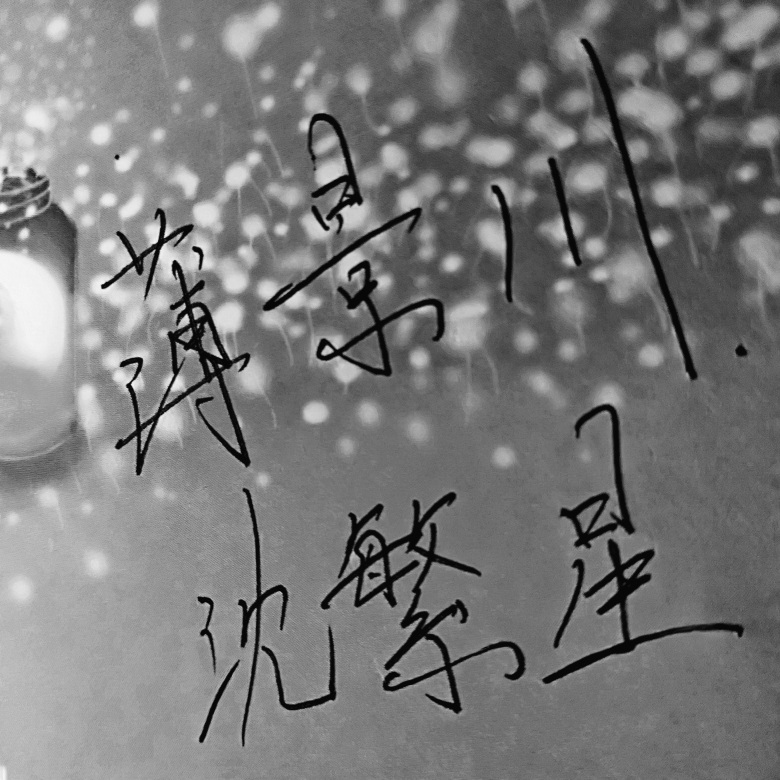 薄景川.
沈繁星